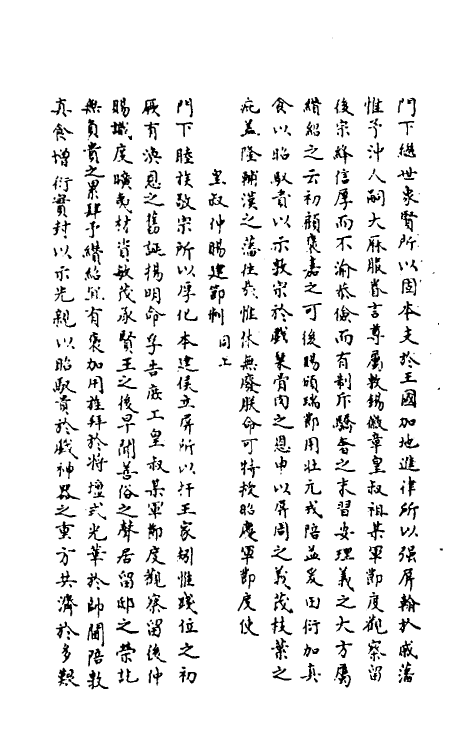 門下繼世象賢所以固本支於王國加地進律所以强屏翰於戚藩
惟予沖人嗣大厤服眷言尊屬敷錫徽章皇叔祖某軍節度觀察留
後宗絳信厚而不渝恭儉而有制斥驕奢之末習安理義之大方屬
纘紹之云初顧褒嘉之可後賜頒瑞節用壯元戎陪益爰田衍加真
食以昭馭貴以示敦宗於戲篤骨肉之恩申以屏周之義茂枝葉之
庇盖隆輔漢之藩往哉惟休無廢朕命可特授昭慶軍節度使
皇叔仲賜建節制同上
門下睦族敬宗所以厚化本建侯立屏所以扞王家矧惟踐位之初
厥有渙恩之舊誕揚明命孚告底工皇叔某軍節度觀察留後仲
賜識度曠夷材資敏茂承賢王之後早聞善俗之聲居留邸之榮訖
無負貴之累肆予纘紹宜有褒加用旌拜於將壇式光華於帥閫陪敦
真食增衍實封以示光親以昭馭貴於戲神器之重方共濟於多艱